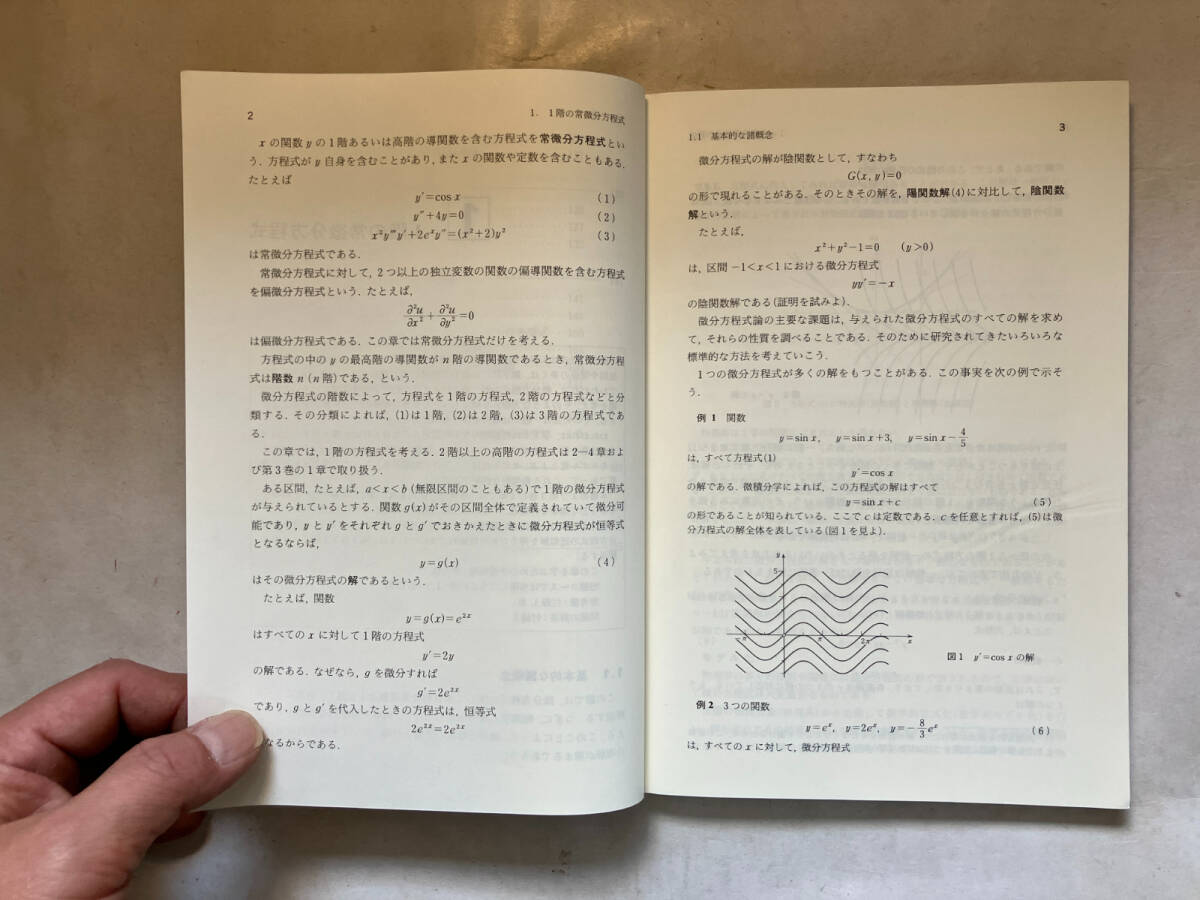 2
1. 1階の常微分方程式
xの関数yの1階あるいは高階の導関数を含む方程式を常微分方程式とい
う.方程式がy自身を含むことがあり,またxの関数や定数を含むこともある.
たとえば
y′=cos x (1)
y″+4y=0 (2)
x²y‴y′+2eˣy″=(x²+2)y² (3)
は常微分方程式である.
常微分方程式に対して,2つ以上の独立変数の関数の偏導関数を含む方程式
を偏微分方程式という.たとえば,
∂²u/∂x²+∂²u/∂y²=0
は偏微分方程式である.この章では常微分方程式だけを考える.
方程式の中のyの最高階の導関数がn階の導関数であるとき,常微分方程
式は階数n(n階)である,という.
微分方程式の階数によって,方程式を1階の方程式,2階の方程式などと分
類する.その分類によれば,(1)は1階,(2)は2階,(3)は3階の方程式であ
る.
この章では,1階の方程式を考える.2階以上の高階の方程式は2—4章およ
び第3巻の1章で取り扱う.
ある区間,たとえば,a<x<b(無限区間のこともある)で1階の微分方程式
が与えられているとする.関数g(x)がその区間全体で定義されていて微分可
能であり,yとy′をそれぞれgとg′でおきかえたときに微分方程式が恒等式
となるならば,
y=g(x) (4)
はその微分方程式の解であるという.
たとえば,関数
y=g(x)=e²ˣ
はすべてのxに対して1階の方程式
y′=2y
の解である.なぜなら,gを微分すれば
g′=2e²ˣ
であり,gとg′を代入したときの方程式は,恒等式
2e²ˣ=2e²ˣ
なるからである.
1.1 基本的な諸概念
3
微分方程式の解が陰関数として,すなわち
G(x, y)=0
の形で現れることがある.そのときその解を,陽関数解(4)に対比して,陰関数
解という.
たとえば,
x²+y²−1=0 (y>0)
は,区間−1<x<1における微分方程式
yy′=−x
の陰関数解である(証明を試みよ).
微分方程式論の主要な課題は,与えられた微分方程式のすべての解を求め
て,それらの性質を調べることである.そのために研究されてきたいろいろな
標準的な方法を考えていこう.
1つの微分方程式が多くの解をもつことがある.この事実を次の例で示そ
う.
例1 関数
y=sin x, y=sin x+3, y=sin x−4/5
は,すべて方程式(1)
y′=cos x
の解である.微積分学によれば,この方程式の解はすべて
y=sin x+c (5)
の形であることが知られている.ここでcは定数である.cを任意とすれば,(5)は微
分方程式の解全体を表している(図1を見よ).
y
5
−π π 2π x
図1 y′=cos xの解
例2 3つの関数
y=eˣ, y=2eˣ, y=−8/3eˣ (6)
は,すべてのxに対して,微分方程式